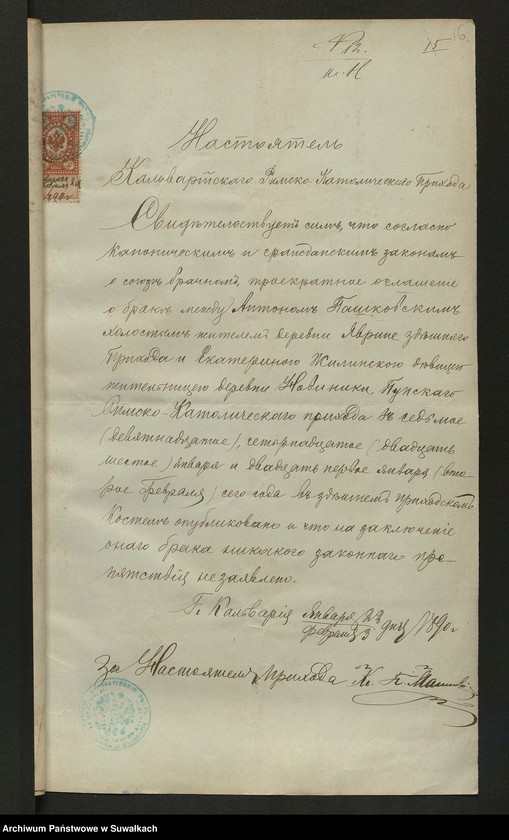 15 16.
Настоятель
Кальварійскаго Римско-Католическаго Прихода
Свидѣтельствуетъ симъ, что согласно
каноническимъ и гражданскимъ законамъ
о союзѣ брачномъ, троекратное оглашеніе
о бракѣ между Антономъ Пашковскимъ
холостымъ жителемъ деревни здѣшняго
Прихода и Екатериною Жилинского дѣвицею
жительницею деревни Новиники, Пунскаго
Римско-Католическаго прихода въ седьмое
(девятнадцатое), четырнадцатое (двадцать
шестое) Января и двадцать первое января (вто-
рое Февраля) сего года въ здѣшнемъ приходскомъ
Костелѣ опубликовано и что на заключеніе
онаго брака никакого законнаго пре-
пятствія незаявлено.
Г. Кальварія Января 22 дня 1890 г.
Февраля 3
За Настоятеля Прихода Кс. П.
Archiwum Państwowe w Suwałkach